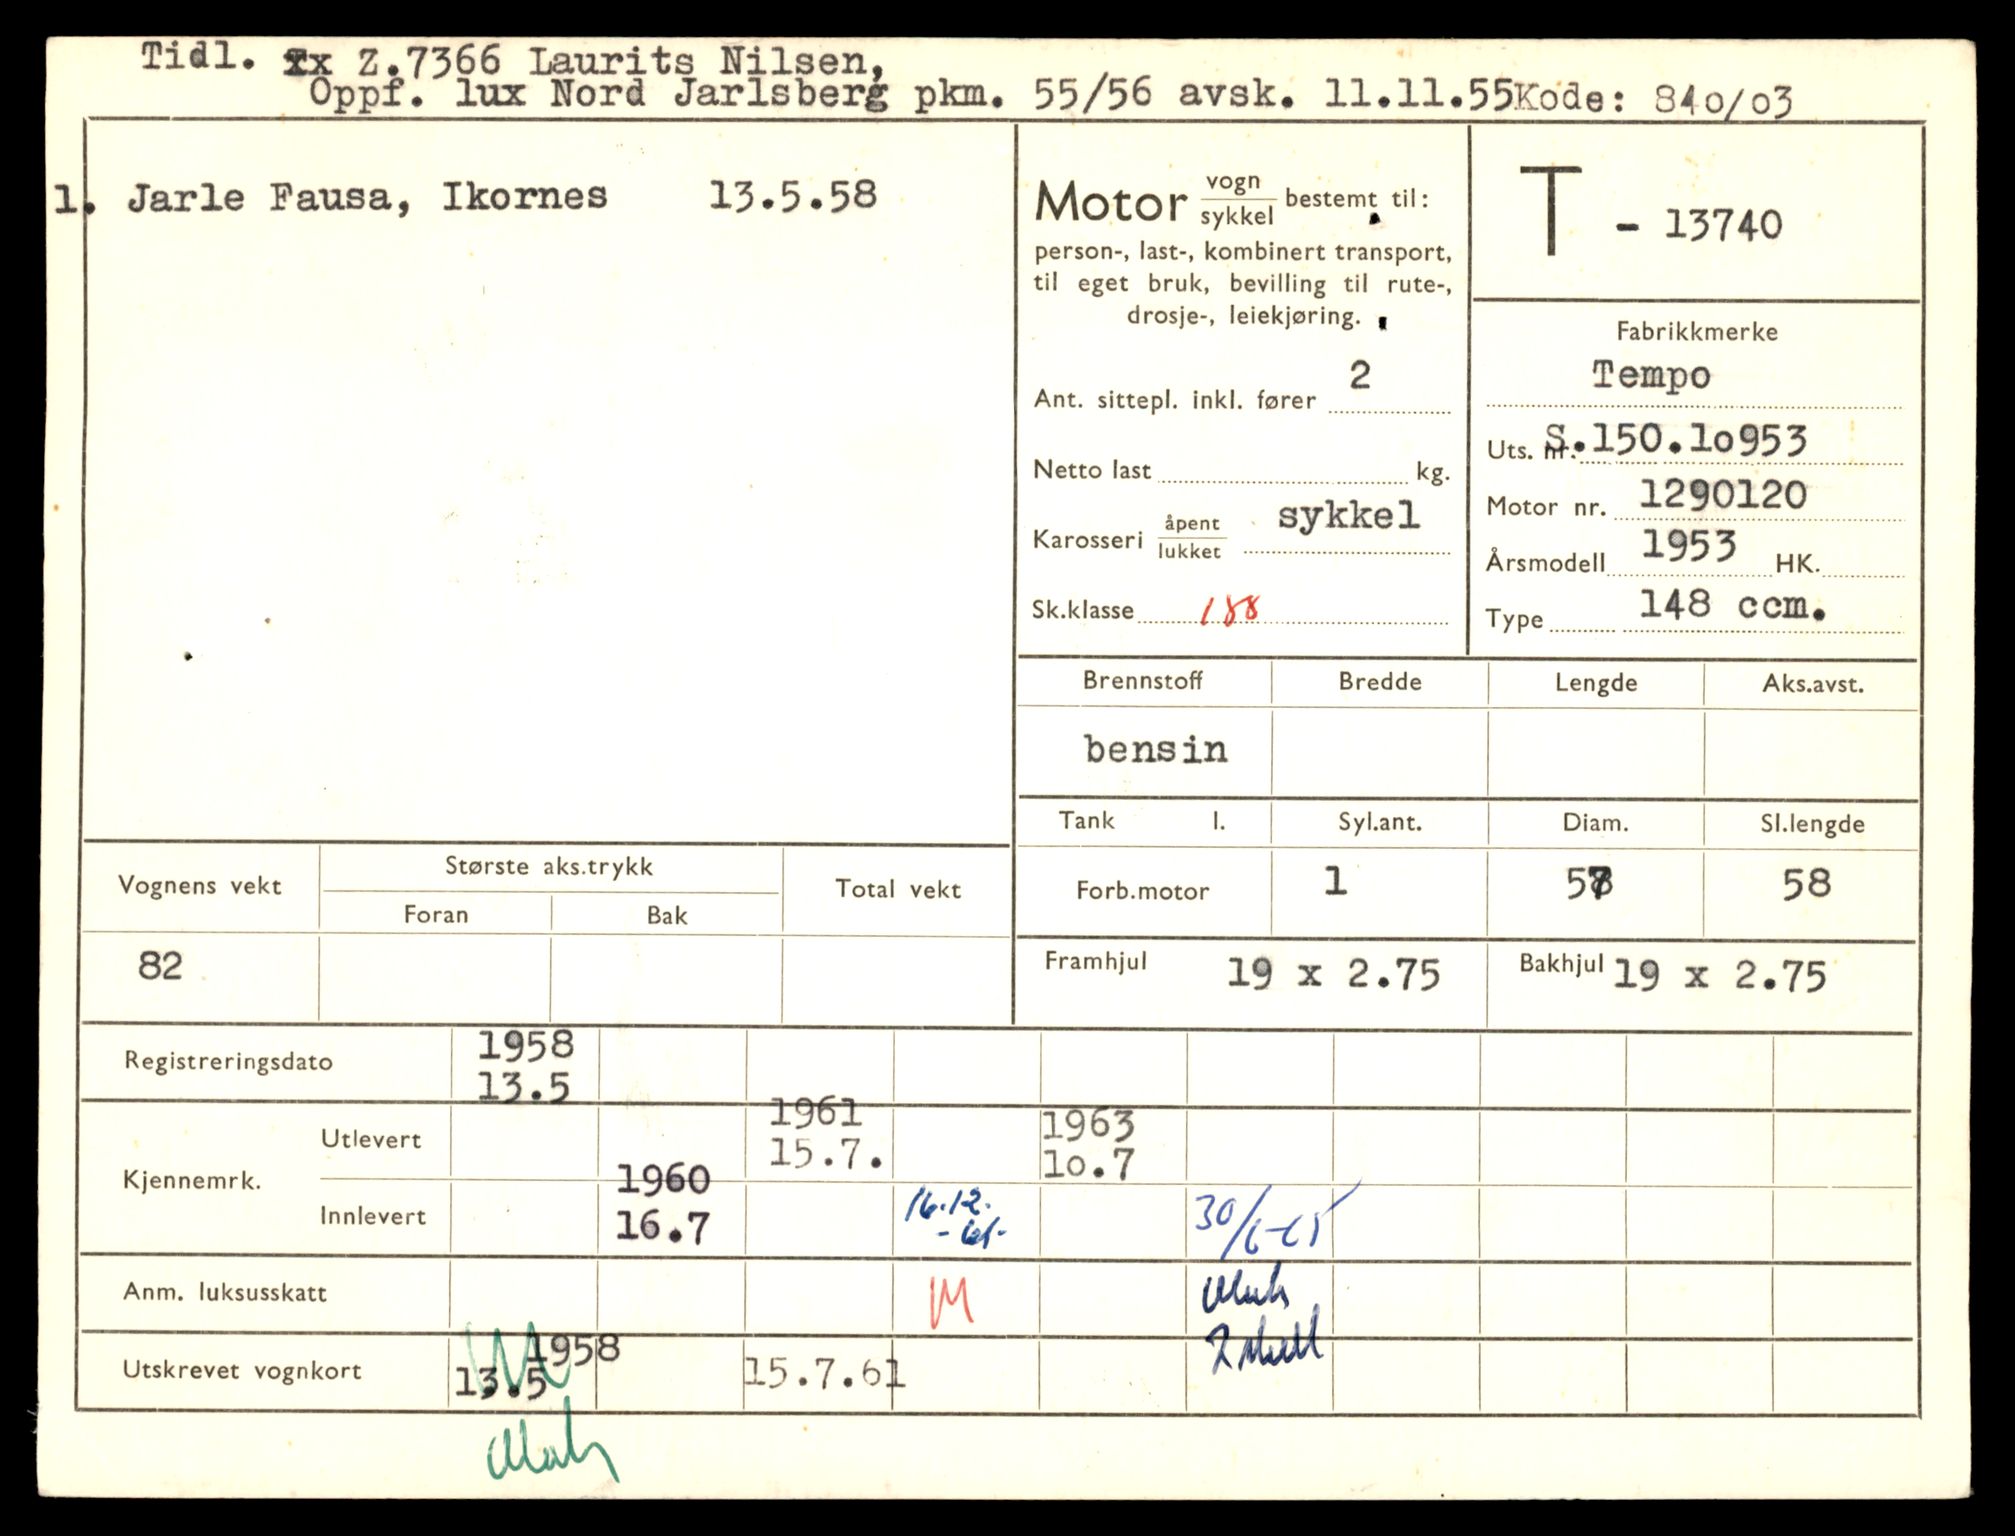 Tidl. Z.7366 Laurits Nilsen,
Oppf. lux Nord Jarlsberg pkm. 55/56 avsk. 11.11.55 Kode: 840/03
1. Jarle Fausa, Ikornes 13.5.58
Motor vogn/sykkel bestemt til:
person-, last-, kombinert transport,
til eget bruk, bevilling til rute-,
drosje-, leiekjøring.
Ant. sittepl. inkl. fører 2
Netto last kg.
Karosseri åpent/lukket sykkel
Sk.klasse 188
T - 13740
Fabrikkmerke
Tempo
Uts. nr. S.150.10953
Motor nr. 1290120
Årsmodell 1953 HK.
Type 148 ccm.
Brennstoff Bredde Lengde Aks.avst.
bensin
Tank l. Syl.ant. Diam. Sl.lengde
Forb.motor 1 57 58
Framhjul 19 x 2.75 Bakhjul 19 x 2.75
Vognens vekt Største aks.trykk Total vekt
Foran Bak
82
Registreringsdato 1958
13.5
Kjennemrk.
Utlevert 1961 1963
15.7. 10.7
Innlevert 1960 16.12. 30/6-65
16.7 -61-
Anm. luksusskatt M
Utskrevet vognkort 1958
13.5 15.7.61